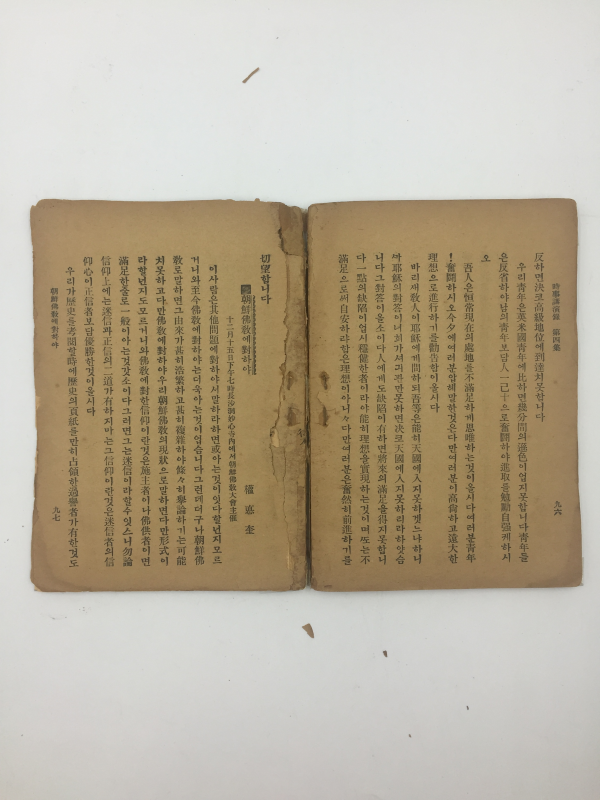 時事講演集 第四集
九六
反하면決코高級地位에到達치못합니다
우리靑年은英米國靑年에比하면幾分間의遜色이업지못합니다靑年들
은反省하야남의靑年보담人一己十으로奮鬪하야進取를勉勵自强케하시
오
吾人은恒常現在의處地를不滿足하게思唯하는것이올시다여러분靑年
!奮鬪하시오今夕에여러분압헤말한것은다만여러분이高尙하고遠大한
理想으로進行하기를勸告함이올시다
바리새敎人이耶穌에게問하되吾等은能히天國에人지못하겟느냐하니
까耶穌의對答이너희가져귀만못하면決코天國에人지못하리라하얏슴
니다그對答이올소이다人에게도缺陷이有하면將來의滿足을得지못합니
다一點의缺陷이업시穩健한者이라야能히理想을實現하는것이며또는不
滿足으로써自安하라함은理想이아니다다만여러분은奮然히前進하기를
切望합니다
朝鮮佛敎에對하야
十二月十五日下午七時長沙洞妙心寺內에서朝鮮佛敎大會主催
權悳奎
이사람은其他問題에對하야서말하라하면或아는것이잇다할넌지모르
거니와至今佛敎에對하야는더욱아는것이업슴니다그런데더구나朝鮮佛
敎로말하면그由來가甚히浩繁하고甚히複雜하야條々히擧論하기는可能
치못하고다만佛敎에對하야우리朝鮮佛敎의現狀으로말하면다만形式이
라할넌지도모르거니와佛敎에對한信仰이란것은施主者이나佛供者이면
滿足한줄로一般이아는것갓소이다그러면그는迷信이라할수잇스니勿論
信仰上에는迷信과正信의二道가有하지마는그信仰이란것은迷信者의信
仰心이正信者보담優勝한것이올시다
우리가歷史를考閱할時에歷史의頁紙를만히占領한過去者가有한것도
朝鮮佛敎에對하야
九七